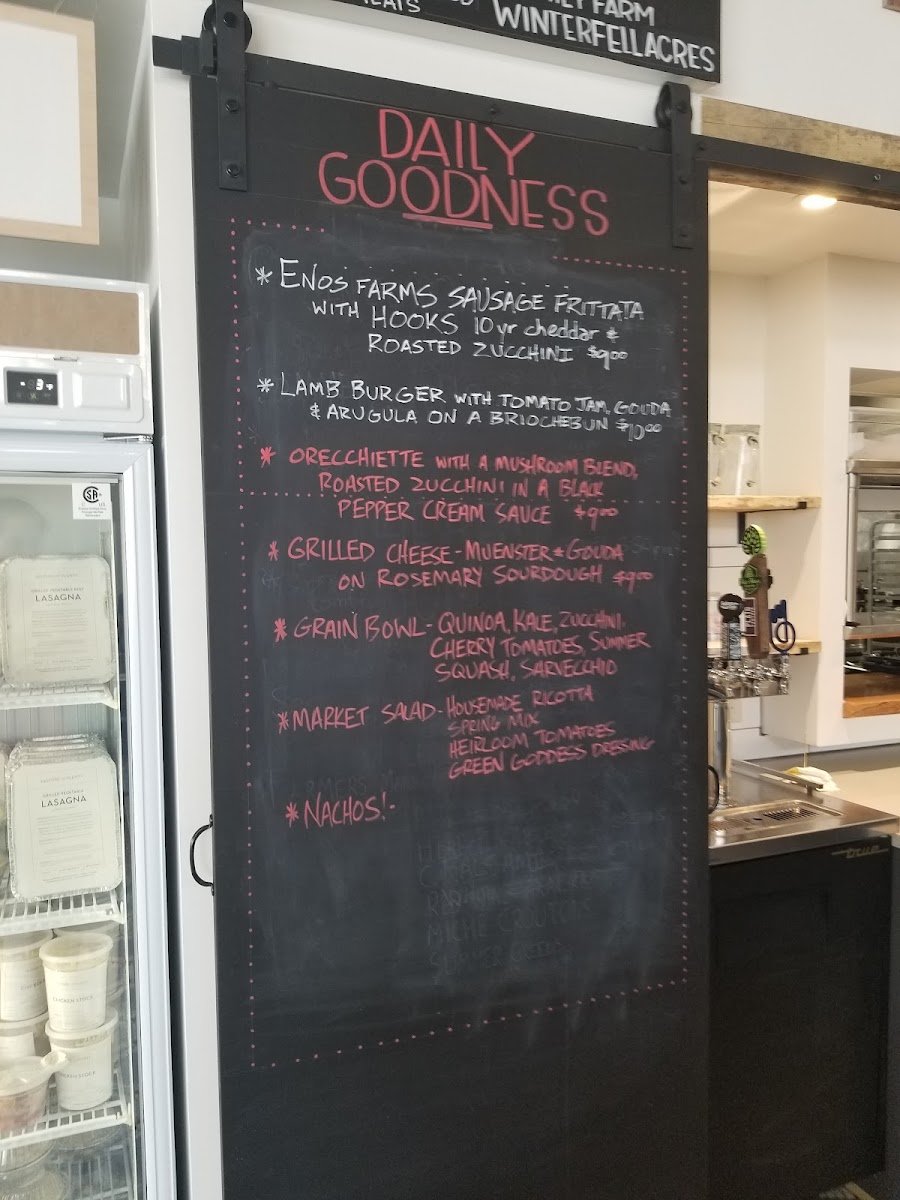 EATS
FARM
WINTERFELL ACRES
DAILY
GOODNESS
* ENOS FARMS SAUSAGE FRITTATA
WITH HOOKS 10 yr cheddar &
ROASTED ZUCCHINI $9.00
* LAMB BURGER WITH TOMATO JAM, GOUDA
& ARUGULA ON A BRIOCHEBUN $10.00
* ORECCHIETTE WITH A MUSHROOM BLEND,
ROASTED ZUCCHINI IN A BLACK
PEPPER CREAM SAUCE $9.00
* GRILLED CHEESE - MUENSTER & GOUDA
ON ROSEMARY SOURDOUGH $9.00
* GRAIN BOWL - QUINOA, KALE, ZUCCHINI,
CHERRY TOMATOES, SUMMER
SQUASH, SARVECCHIO
* MARKET SALAD - HOUSEMADE RICOTTA
SPRING MIX
HEIRLOOM TOMATOES
GREEN GODDESS DRESSING
* NACHOS! -
LASAGNA
LASAGNA
CHICKEN STOCK
true